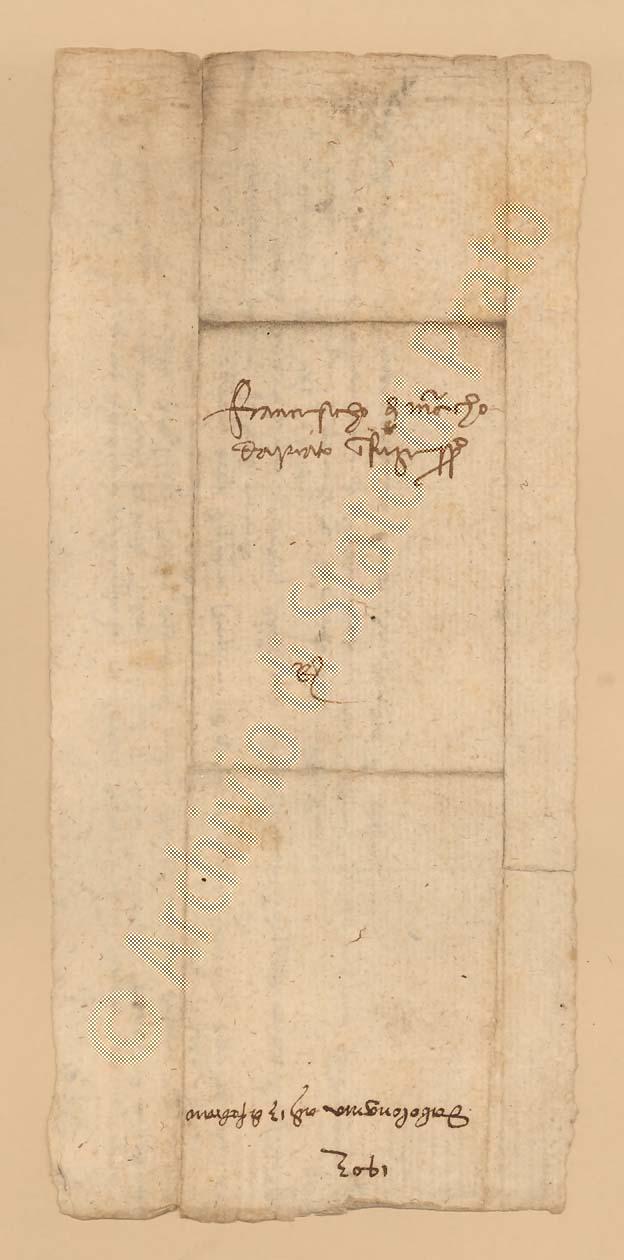 Francischo d mᵃcho
Daprato
© Archivio di Stato di Prato
Dabolongnia adj 13 d febraio
1403